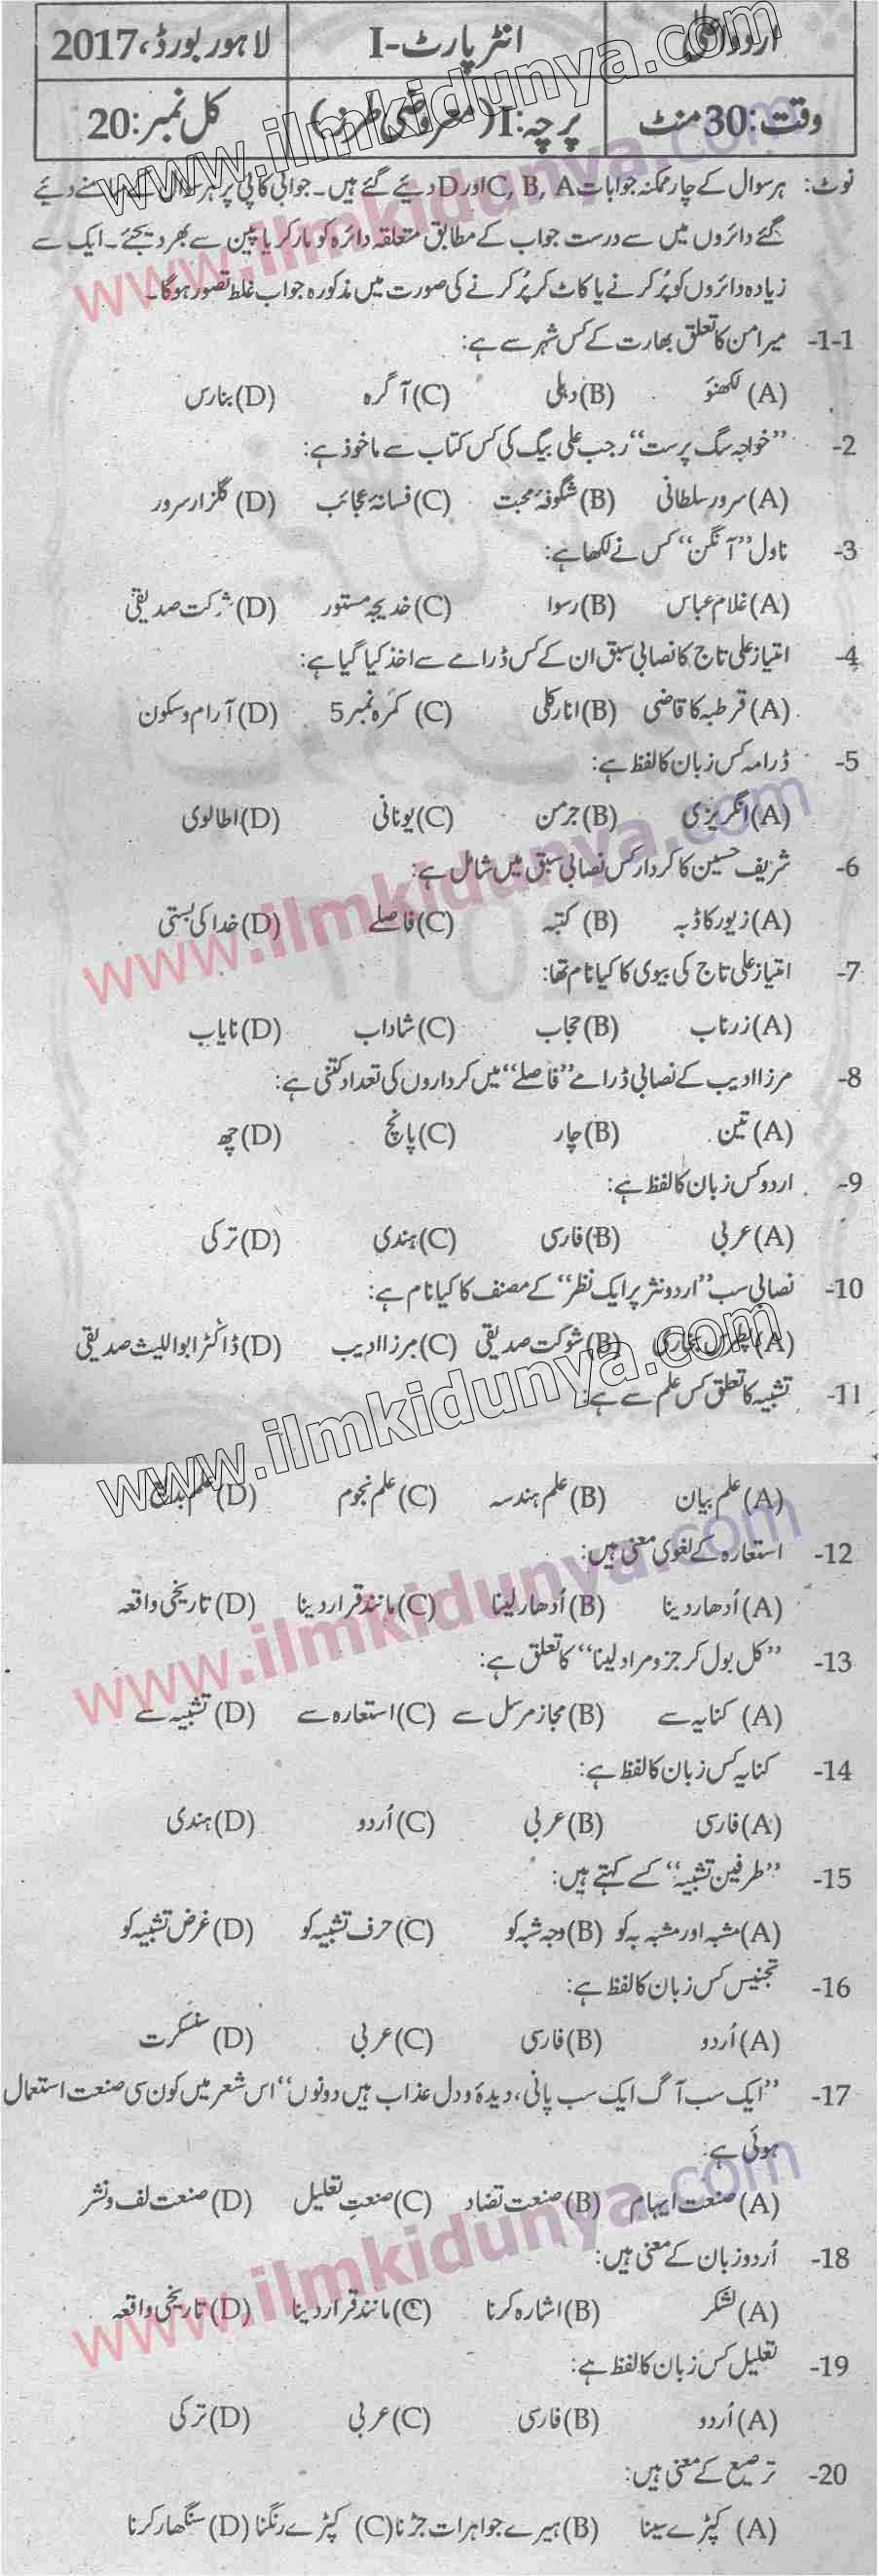 اردو
انٹر پارٹ-I
لاہور بورڈ، 2017
وقت: 30 منٹ
پرچہ: I (معروضی طرز)
کل نمبر: 20
نوٹ: ہر سوال کے چار ممکنہ جوابات C, B, A اور D دیئے گئے ہیں۔ جوابی کاپی پر ہر سوال کے سامنے دیئے
گئے دائروں میں سے درست جواب کے مطابق متعلقہ دائرہ کو مارکر یا پین سے بھر دیجئے۔ ایک سے
زیادہ دائروں کو پُر کرنے یا کاٹ کر پُر کرنے کی صورت میں مذکورہ جواب غلط تصور ہوگا۔
1-1- میر امن کا تعلق بھارت کے کس شہر سے ہے:
(A) لکھنؤ (B) دہلی (C) آگرہ (D) بنارس
2- ”خواجہ سگ پرست“ رجب علی بیگ کی کس کتاب سے ماخوذ ہے:
(A) سرور سلطانی (B) شگوفۂ محبت (C) فسانۂ عجائب (D) گلزار سرور
3- ناول ”آنگن“ کس نے لکھا ہے:
(A) غلام عباس (B) رسوا (C) خدیجہ مستور (D) شوکت صدیقی
4- امتیاز علی تاج کا نصابی سبق ان کے کس ڈرامے سے اخذ کیا گیا ہے:
(A) قرطبہ کا قاضی (B) انار کلی (C) کمرہ نمبر 5 (D) آرام و سکون
5- ڈرامہ کس زبان کا لفظ ہے:
(A) انگریزی (B) جرمن (C) یونانی (D) اطالوی
6- شریف حسین کا کردار کس نصابی سبق میں شامل ہے:
(A) زیور کا ڈبہ (B) کتبہ (C) فاصلے (D) خدا کی بستی
7- امتیاز علی تاج کی بیوی کا کیا نام تھا:
(A) زرناب (B) حجاب (C) شاداب (D) نایاب
8- مرزا ادیب کے نصابی ڈرامے ”فاصلے“ میں کرداروں کی تعداد کتنی ہے:
(A) تین (B) چار (C) پانچ (D) چھ
9- اردو کس زبان کا لفظ ہے:
(A) عربی (B) فارسی (C) ہندی (D) ترکی
10- نصابی سب ”اردو نثر پر ایک نظر“ کے مصنف کا کیا نام ہے:
(A) پطرس بخاری (B) شوکت صدیقی (C) مرزا ادیب (D) ڈاکٹر ابواللیث صدیقی
11- تشبیہ کا تعلق کس علم سے ہے:
(A) علم بیان (B) علم ہندسہ (C) علم نجوم (D) علم بدیع
12- استعارہ کے لغوی معنی ہیں:
(A) اُدھار دینا (B) اُدھار لینا (C) مانند قرار دینا (D) تاریخی واقعہ
13- ”کل بول کر جزو مراد لینا“ کا تعلق ہے:
(A) کنایہ سے (B) مجاز مرسل سے (C) استعارہ سے (D) تشبیہ سے
14- کنایہ کس زبان کا لفظ ہے:
(A) فارسی (B) عربی (C) اُردو (D) ہندی
15- ”طرفین تشبیہ“ کسے کہتے ہیں:
(A) مشبہ اور مشبہ بہ کو (B) وجہ شبہ کو (C) حرف تشبیہ کو (D) غرض تشبیہ کو
16- تجنیس کس زبان کا لفظ ہے:
(A) اُردو (B) فارسی (C) عربی (D) سنسکرت
17- ”ایک سب آگ ایک سب پانی، دیدۂ و دل عذاب ہیں دونوں“ اس شعر میں کون سی صنعت استعمال
ہوئی ہے:
(A) صنعت ایہام (B) صنعت تضاد (C) صنعتِ تعلیل (D) صنعت لف و نشر
18- اُردو زبان کے معنی ہیں:
(A) لشکر (B) اشارہ کرنا (C) مانند قرار دینا (D) تاریخی واقعہ
19- تعلیل کس زبان کا لفظ ہے:
(A) اُردو (B) فارسی (C) عربی (D) ترکی
20- ترصیع کے معنی ہیں:
(A) کپڑے سینا (B) ہیرے جواہرات جڑنا (C) کپڑے رنگنا (D) سنگھار کرنا
www.ilmkidunya.com
www.ilmkidunya.com
www.ilmkidunya.com
www.ilmkidunya.com
www.ilmkidunya.com
www.ilmkidunya.com